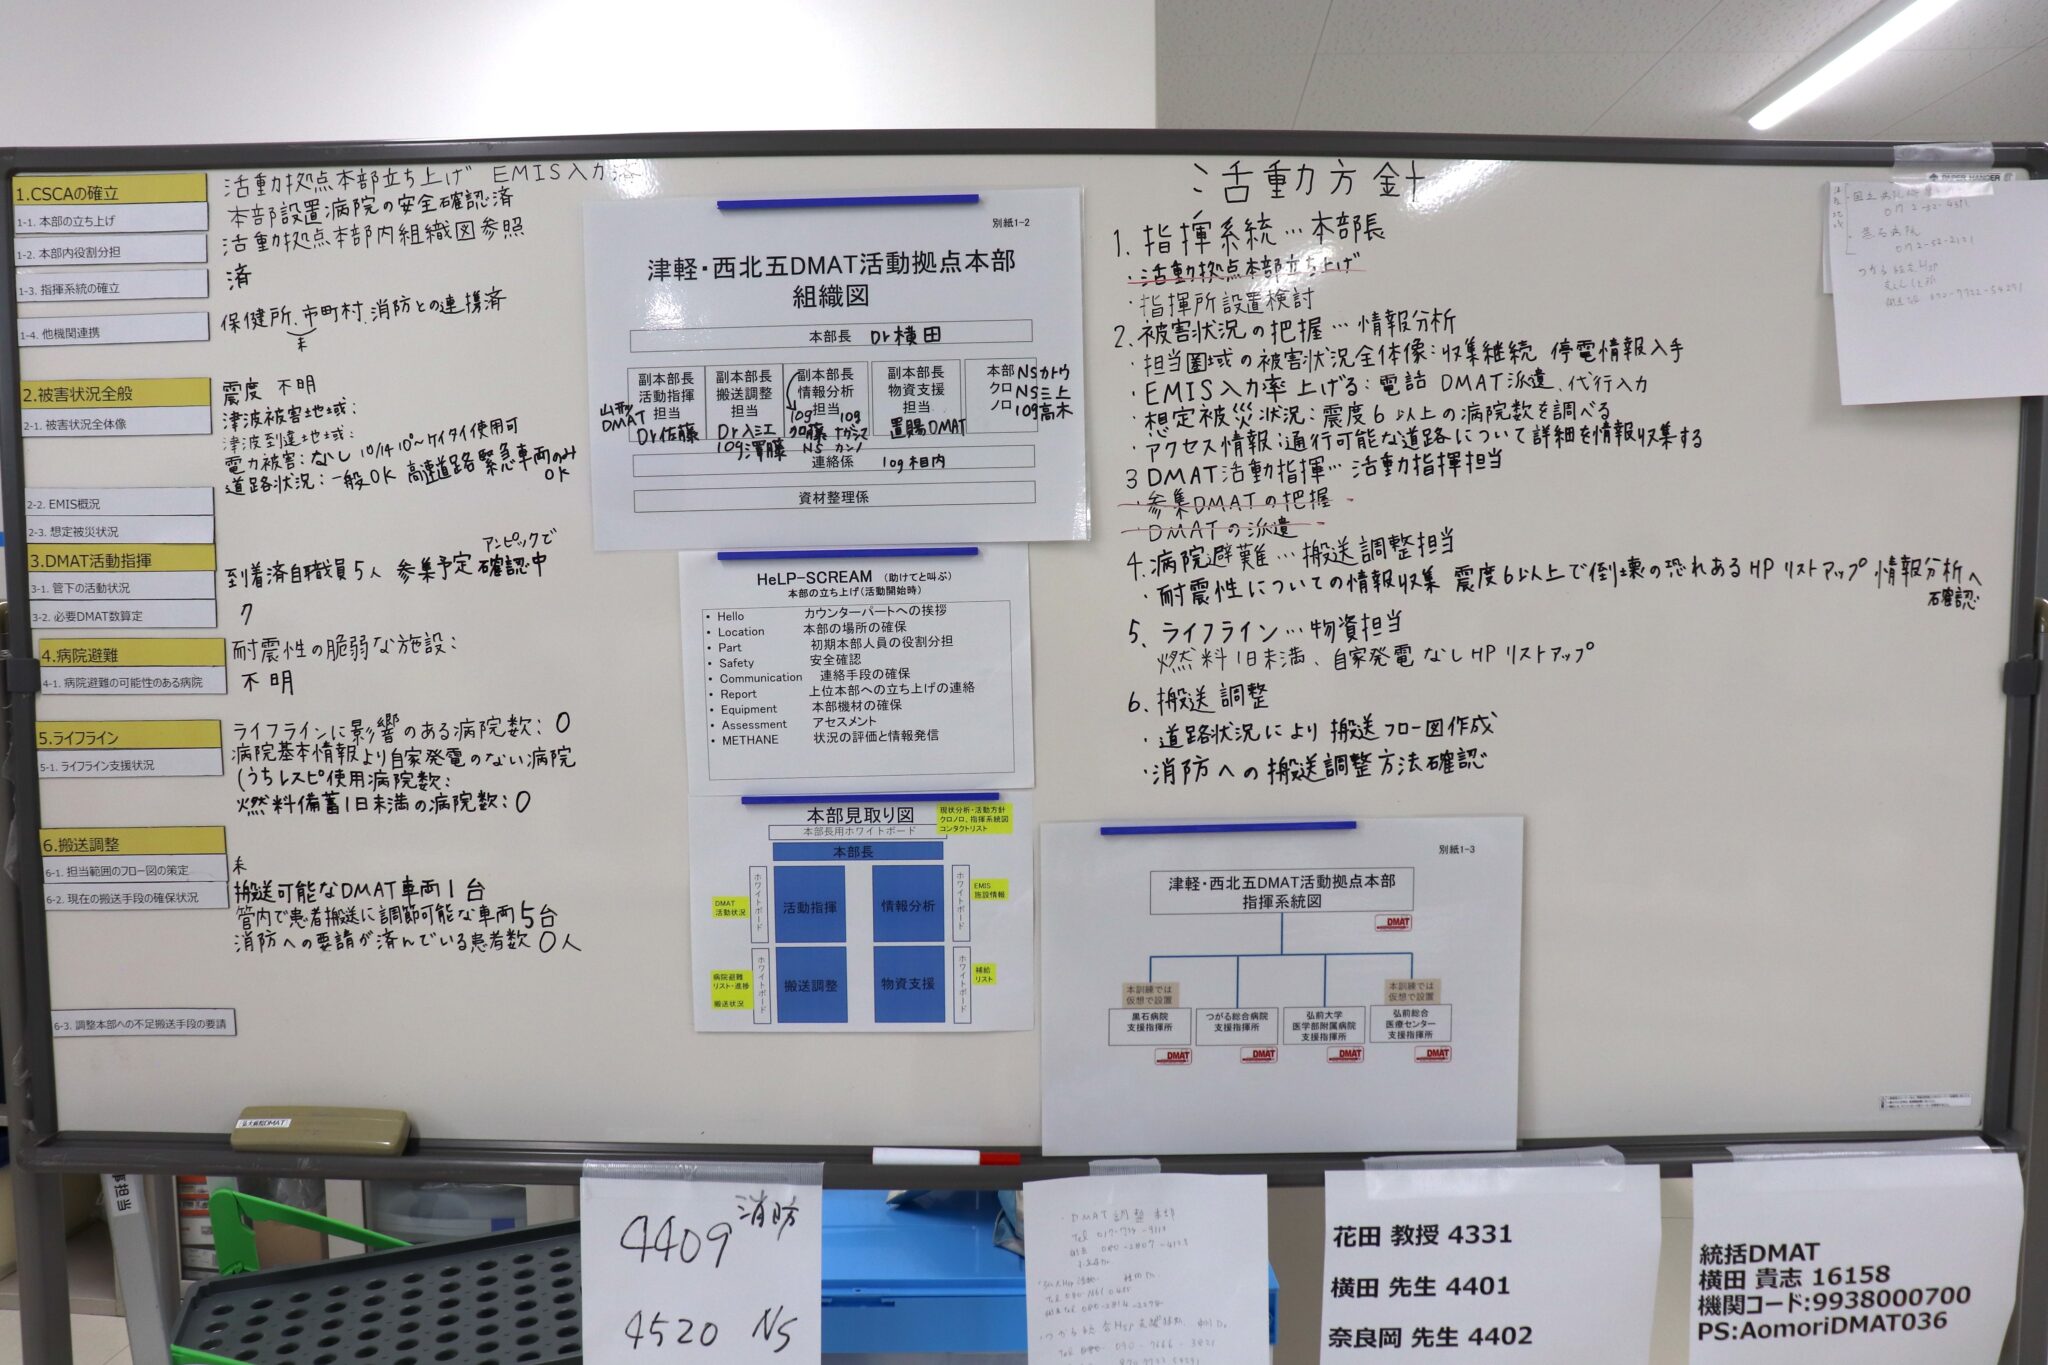 1.CSCAの確立
1-1. 本部の立ち上げ
1-2. 本部内役割分担
1-3. 指揮系統の確立
1-4. 他機関連携
2.被害状況全般
2-1. 被害状況全体像
2-2. EMIS概況
2-3. 想定被災状況
3.DMAT活動指揮
3-1. 管下の活動状況
3-2. 必要DMAT数算定
4.病院避難
4-1. 病院避難の可能性のある病院
5.ライフライン
5-1. ライフライン支援状況
6.搬送調整
6-1. 担当範囲のフロー図の策定
6-2. 現在の搬送手段の確保状況
6-3. 調整本部への不足搬送手段の要請
活動拠点本部立ち上げ EMIS入力済
本部設置病院の安全確認済
活動拠点本部内組織図参照
済
保健所、市町村、消防との連携済
未
震度 不明
津波被害地域:
津波到達地域:
電力被害:なし 10/14 10°~ケイタイ使用可
道路状況:一般OK 高速道路 緊急車両のみ
OK
アンピックで
到着済自職員5人 参集予定 確認中
7
耐震性の脆弱な施設:
不明
ライフラインに影響のある病院数:0
病院基本情報より自家発電のない病院
(うちレスピ使用病院数:
燃料備蓄1日未満の病院数:0
未
搬送可能なDMAT車両1台
管内で患者搬送に調節可能な車両5台
消防への要請が済んでいる患者数0人
別紙1-2
津軽・西北五DMAT活動拠点本部
組織図
本部長 Dr横田
副本部長 活動指揮 担当
山形DMAT Dr佐藤
副本部長 搬送調整 担当
Dr入江
log澤藤
副本部長 情報分析 担当
log
NS カンノ
副本部長 物資支援 担当
置賜DMAT
本部 クロノロ
NSカトウ
NS三上
log高木
連絡係 log相内
資材整理係
HeLP-SCREAM (助けてと叫ぶ)
本部の立ち上げ(活動開始時)
• Hello カウンターパートへの挨拶
• Location 本部の場所の確保
• Part 初期本部人員の役割分担
• Safety 安全確認
• Communication 連絡手段の確保
• Report 上位本部への立ち上げの連絡
• Equipment 本部機材の確保
• Assessment アセスメント
• METHANE 状況の評価と情報発信
本部見取り図
現状分析・活動方針
クロノロ、指揮系統図
コンタクトリスト
本部長用ホワイトボード
本部長
ホワイトボード
活動指揮
情報分析
ホワイトボード
DMAT
活動状況
EMIS
施設情報
ホワイトボード
搬送調整
物資支援
ホワイトボード
病院避難
リスト・進捗
搬送状況
補給
リスト
活動方針
1. 指揮系統…本部長
・活動拠点本部立ち上げ
・指揮所設置検討
2. 被害状況の把握…情報分析
・担当圏域の被害状況全体像:収集継続 停電情報入手
・EMIS入力率上げる:電話 DMAT派遣、代行入力
・想定被災状況:震度6以上の病院数を調べる
・アクセス情報:通行可能な道路について詳細を情報収集する
3 DMAT活動指揮…活動指揮担当
・参集DMATの把握
・DMATの派遣
4. 病院避難…搬送調整担当
・耐震性についての情報収集 震度6以上で倒壊の恐れあるHPリストアップ 情報分析へ
確認
5. ライフライン…物資担当
燃料1日未満、自家発電なしHPリストアップ
6. 搬送調整
・道路状況により搬送フロー図作成
・消防への搬送調整方法確認
別紙1-3
津軽・西北五DMAT活動拠点本部
指揮系統図
DMAT
本訓練では
仮想で設置
本訓練では
仮想で設置
黒石病院
支援指揮所
つがる総合病院
支援指揮所
弘前大学
医学部附属病院
支援指揮所
弘前総合
医療センター
支援指揮所
DMAT
DMAT
DMAT
DMAT
PAPER HANGER
黒石病院
0172-52-2121
弘大病院DMAT
4409 消防
4520 NS
・DMAT調整本部
花田 教授 4331
横田 先生 4401
奈良岡 先生 4402
統括DMAT
横田 貴志 16158
機関コード:9938000700
PS:AomoriDMAT036